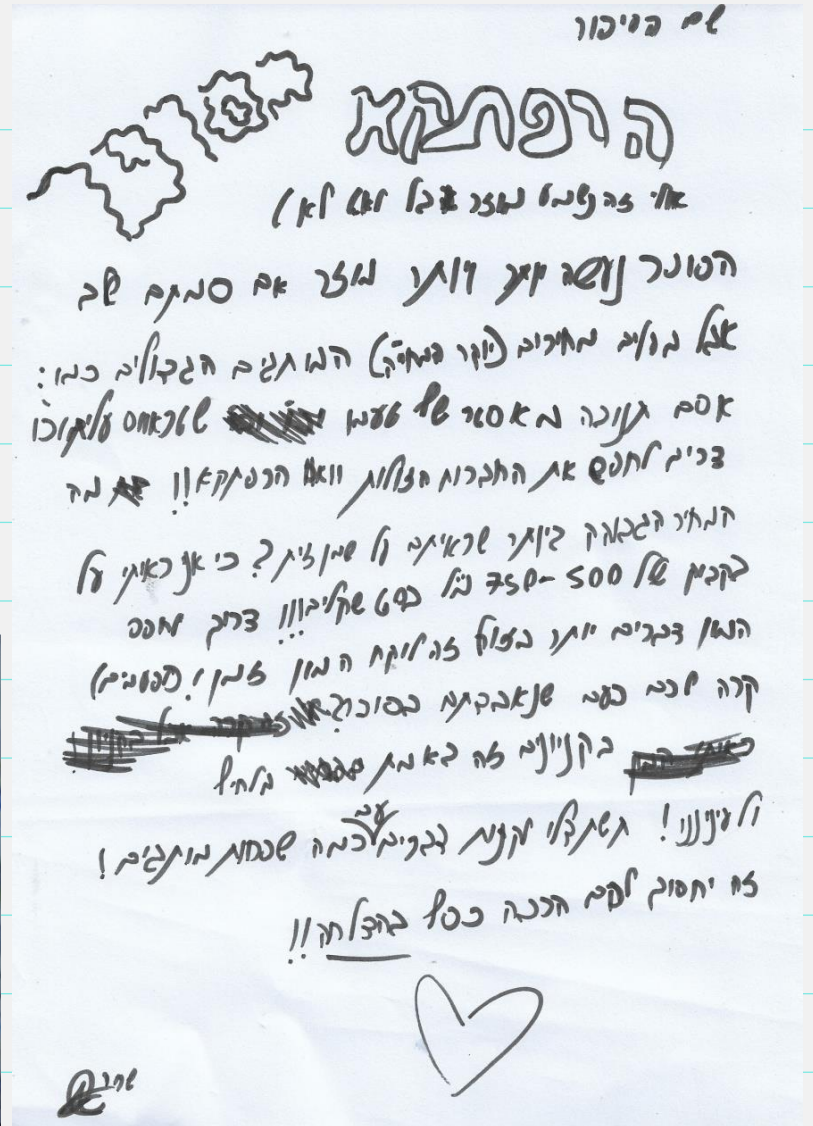 שם הסיפור
הרפתקא
אולי זה נשמע מוזר אבל זה לא)
הסופר נעשה יותר ויותר מוזר אם שמתם לב
אצל מחירים (יוקר המחיה) המותגים הגדולים כמו:
אסם תנובה מאסטר שף טעמן שטראוס עלית וכו
צריך לחפש את החברות הזולות וואו הרפתקא!! מה
המחיר הגבוהה ביותר שראיתם על שמן זית? כי אני ראיתי על
בקבוק של 750-500 מ"ל שקלים!!! צריך לחפש
המון דברים יותר בזול זה לוקח המון זמן! (לפעמים)
קרה לכם פעם שנאבדתם בסופר?
בקניונים זה באמת מלחיץ
ולעיניננו! תשתדלו לקנות דברים עם כמה שפחות מותגים!
זה יחסוך לכם הרבה כסף בהצלחה!!